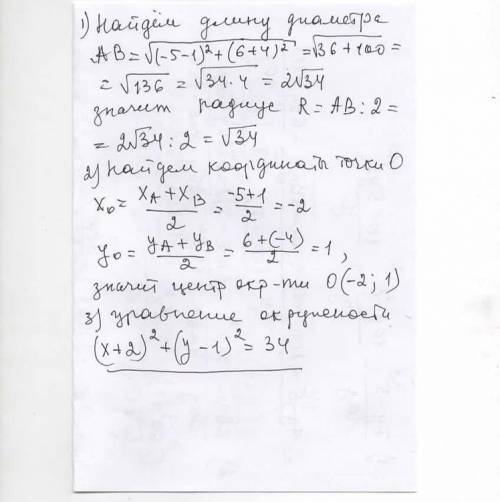 1) Найдём длину диаметра
AB = √((-5-1)² + (6+4)²) = √(36+100) =
= √136 = √(34·4) = 2√34
значит радиус R = AB : 2 =
= 2√34 : 2 = √34
2) Найдем координаты точки O
x₀ = (x_A + x_B)/2 = (-5+1)/2 = -2
y₀ = (y_A + y_B)/2 = (6+(-4))/2 = 1 ,
значит центр окр-ти O(-2; 1)
3) уравнение окружности
(x+2)² + (y-1)² = 34